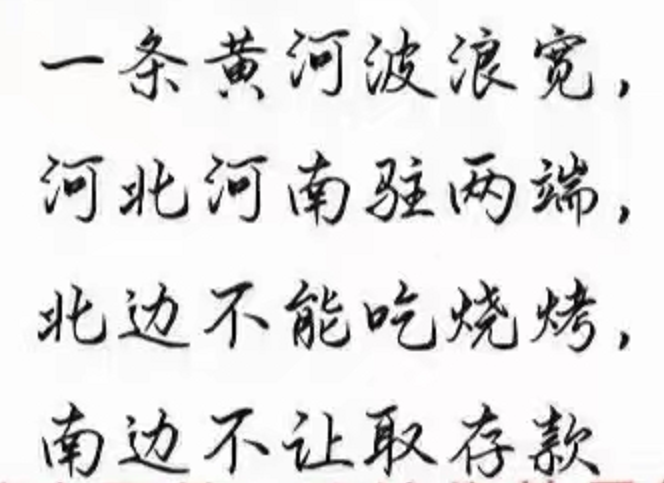 一条黄河波浪宽,
河北河南驻两端,
北边不能吃烧烤,
南边不让取存款